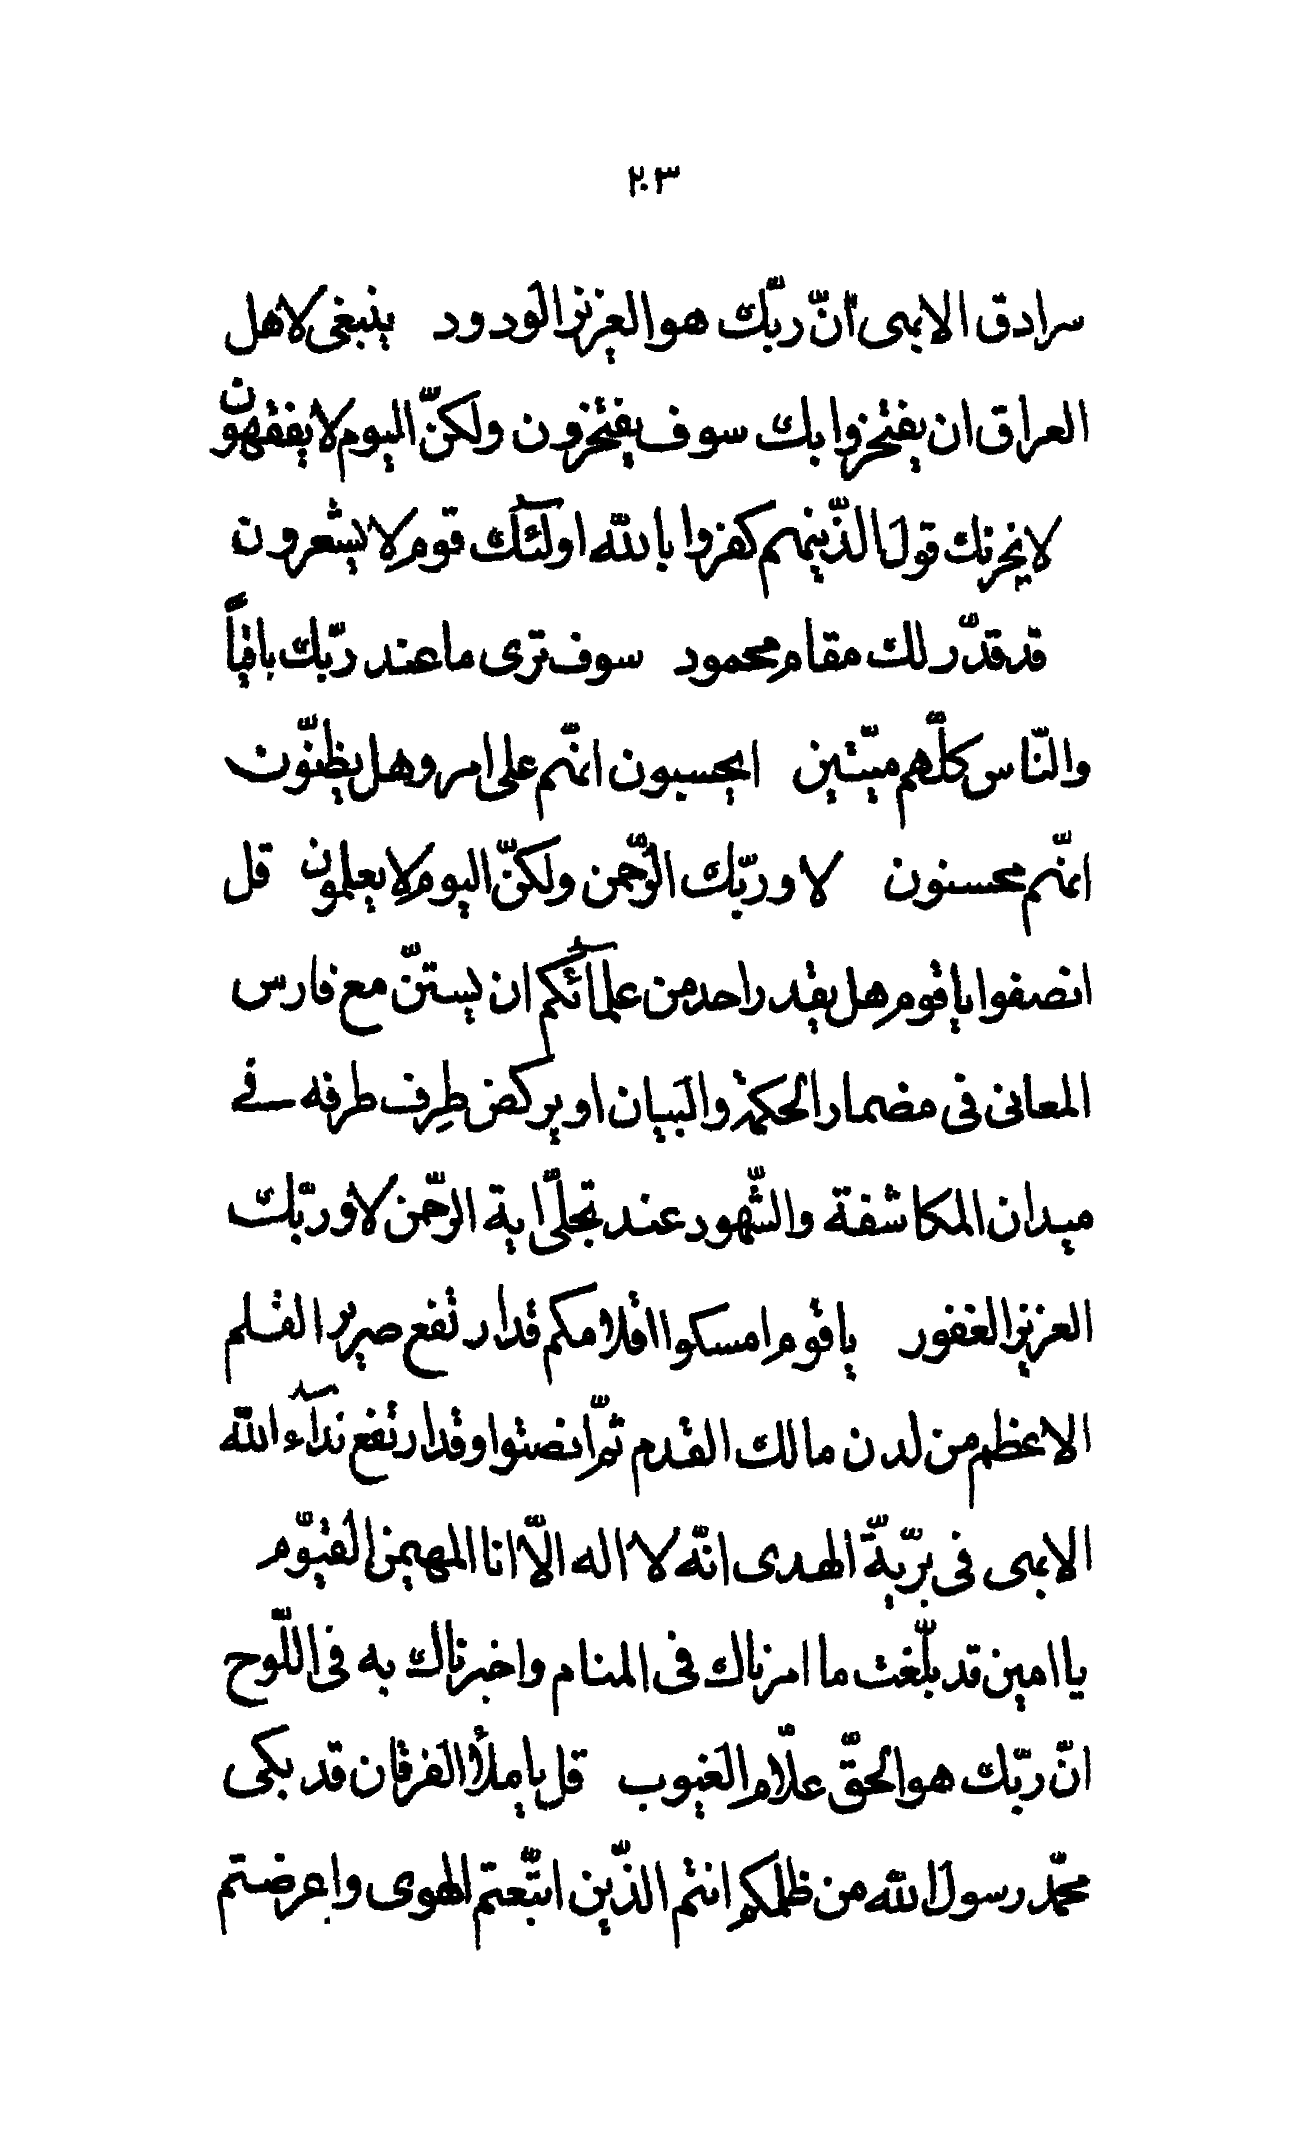 ٢٠٣
سرادق الابهى انّ ربّك هو العزيز الودود ينبغى لاهل
العراق ان يفتخروا بك سوف يفتخرون ولكنّ اليوم لا يفقهون
لا يحزنك قول الّذينهم كفروا بالله اولئك قوم لا يشعرون
قد قدّر لك مقام محمود سوف ترى ما عند ربّك باقياً
والنّاس كلّهم ميّتين ايحسبون انّهم على امر وهل يظنّون
انّهم محسنون لا وربّك الرّحمن ولكنّ اليوم لا يعلمون قل
انصفوا يا قوم هل يقدر احد من علمآئكم ان يستنّ مع فارس
المعانى فى مضمار الحكمة والبيان او يركض طِرف طرفه فى
ميدان المكاشفة والشّهود عند تجلّى اية الرّحمن لا وربّك
العزيز الغفور يا قوم امسكوا اقلامكم قد ارتفع صرير القلم
الاعظم من لدن مالك القدم ثمّ انصتوا وقد ارتفع ندآء الله
الابهى فى برّيّة الهدى انّه لا اله الّا انا المهيمن القيّوم
يا امين قد بلّغت ما امرناك فى المنام واخبرناك به فى اللّوح
انّ ربّك هو الحقّ علّام الغيوب قل يا ملأ الفرقان قد بكى
محمّد رسول الله من ظلمكم انتم الّذين اتّبعتم الهوى واعرضتم